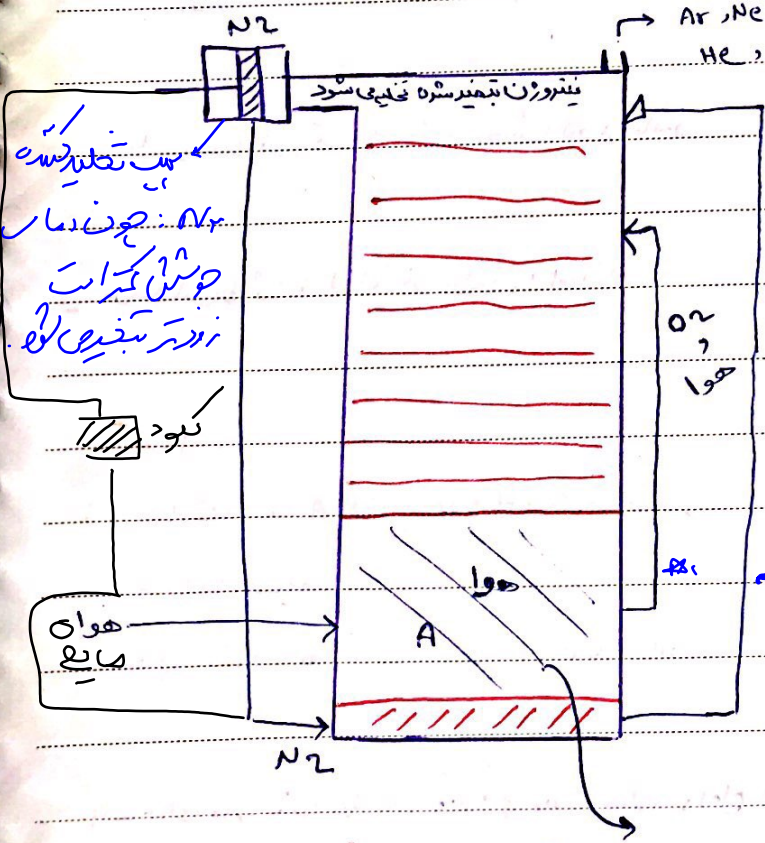 N2
Ar , Ne
He ,
نیتروژن تبخیر شده تخلیه می شود
پمپ تخلیه کننده
N2 : چون دمای
جوشش کمتر است
زودتر تبخیر می شود.
O2
و
هوا
کود
هوا
هوای
مایع
A
N2